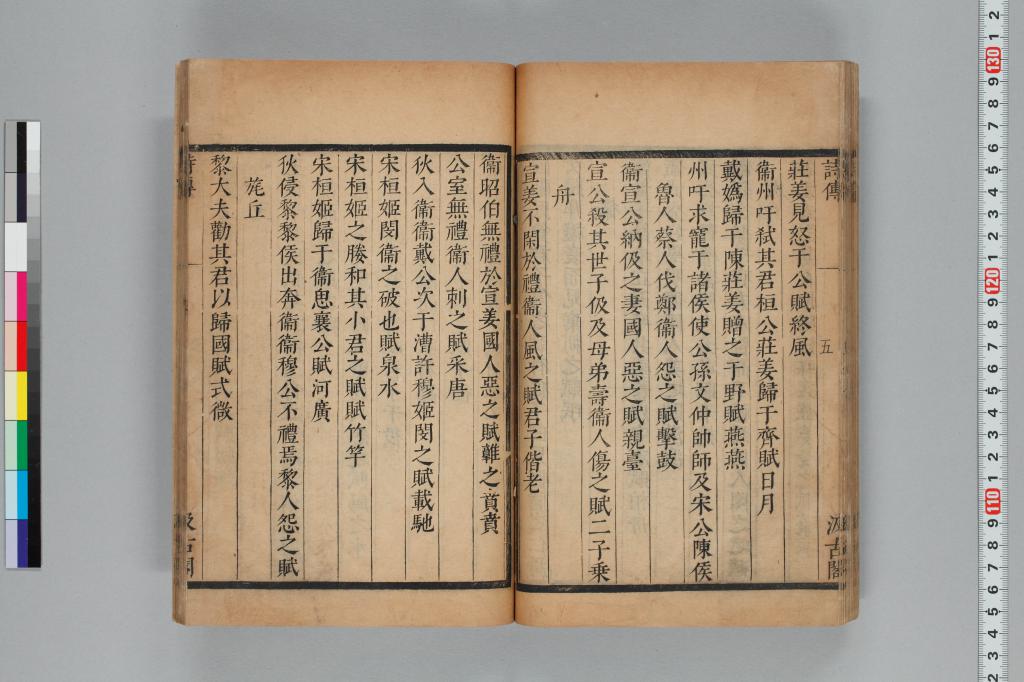 詩傳
五
汲古閣
莊姜見怒于公賦終風
衞州吁弑其君桓公莊姜歸于齊賦日月
戴嬀歸于陳莊姜贈之于野賦燕燕
州吁求寵于諸侯使公孫文仲帥師及宋公陳侯
魯人蔡人伐鄭衞人怨之賦擊鼓
衞宣公納伋之妻國人惡之賦親臺
宣公殺其世子伋及母弟壽衞人傷之賦二子乗
舟
宣姜不閑於禮衞人風之賦君子偕老
衞昭伯無禮於宣姜國人惡之賦雜之賁賁
公室無禮衞人刺之賦采唐
狄入衞衞戴公次于漕許穆姬閔之賦載馳
宋桓姬閔衞之破也賦泉水
宋桓姬之媵和其小君之賦賦竹竿
宋桓姬歸于衞思襄公賦河廣
狄侵黎黎侯出奔衞衞穆公不禮焉黎人怨之賦
旄丘
黎大夫勸其君以歸國賦式微
詩傳
汲古閣
2
1
130
9
8
7
6
5
4
3
2
1
120
9
8
7
6
5
4
3
2
1
110
9
8
7
6
5
4
3
2